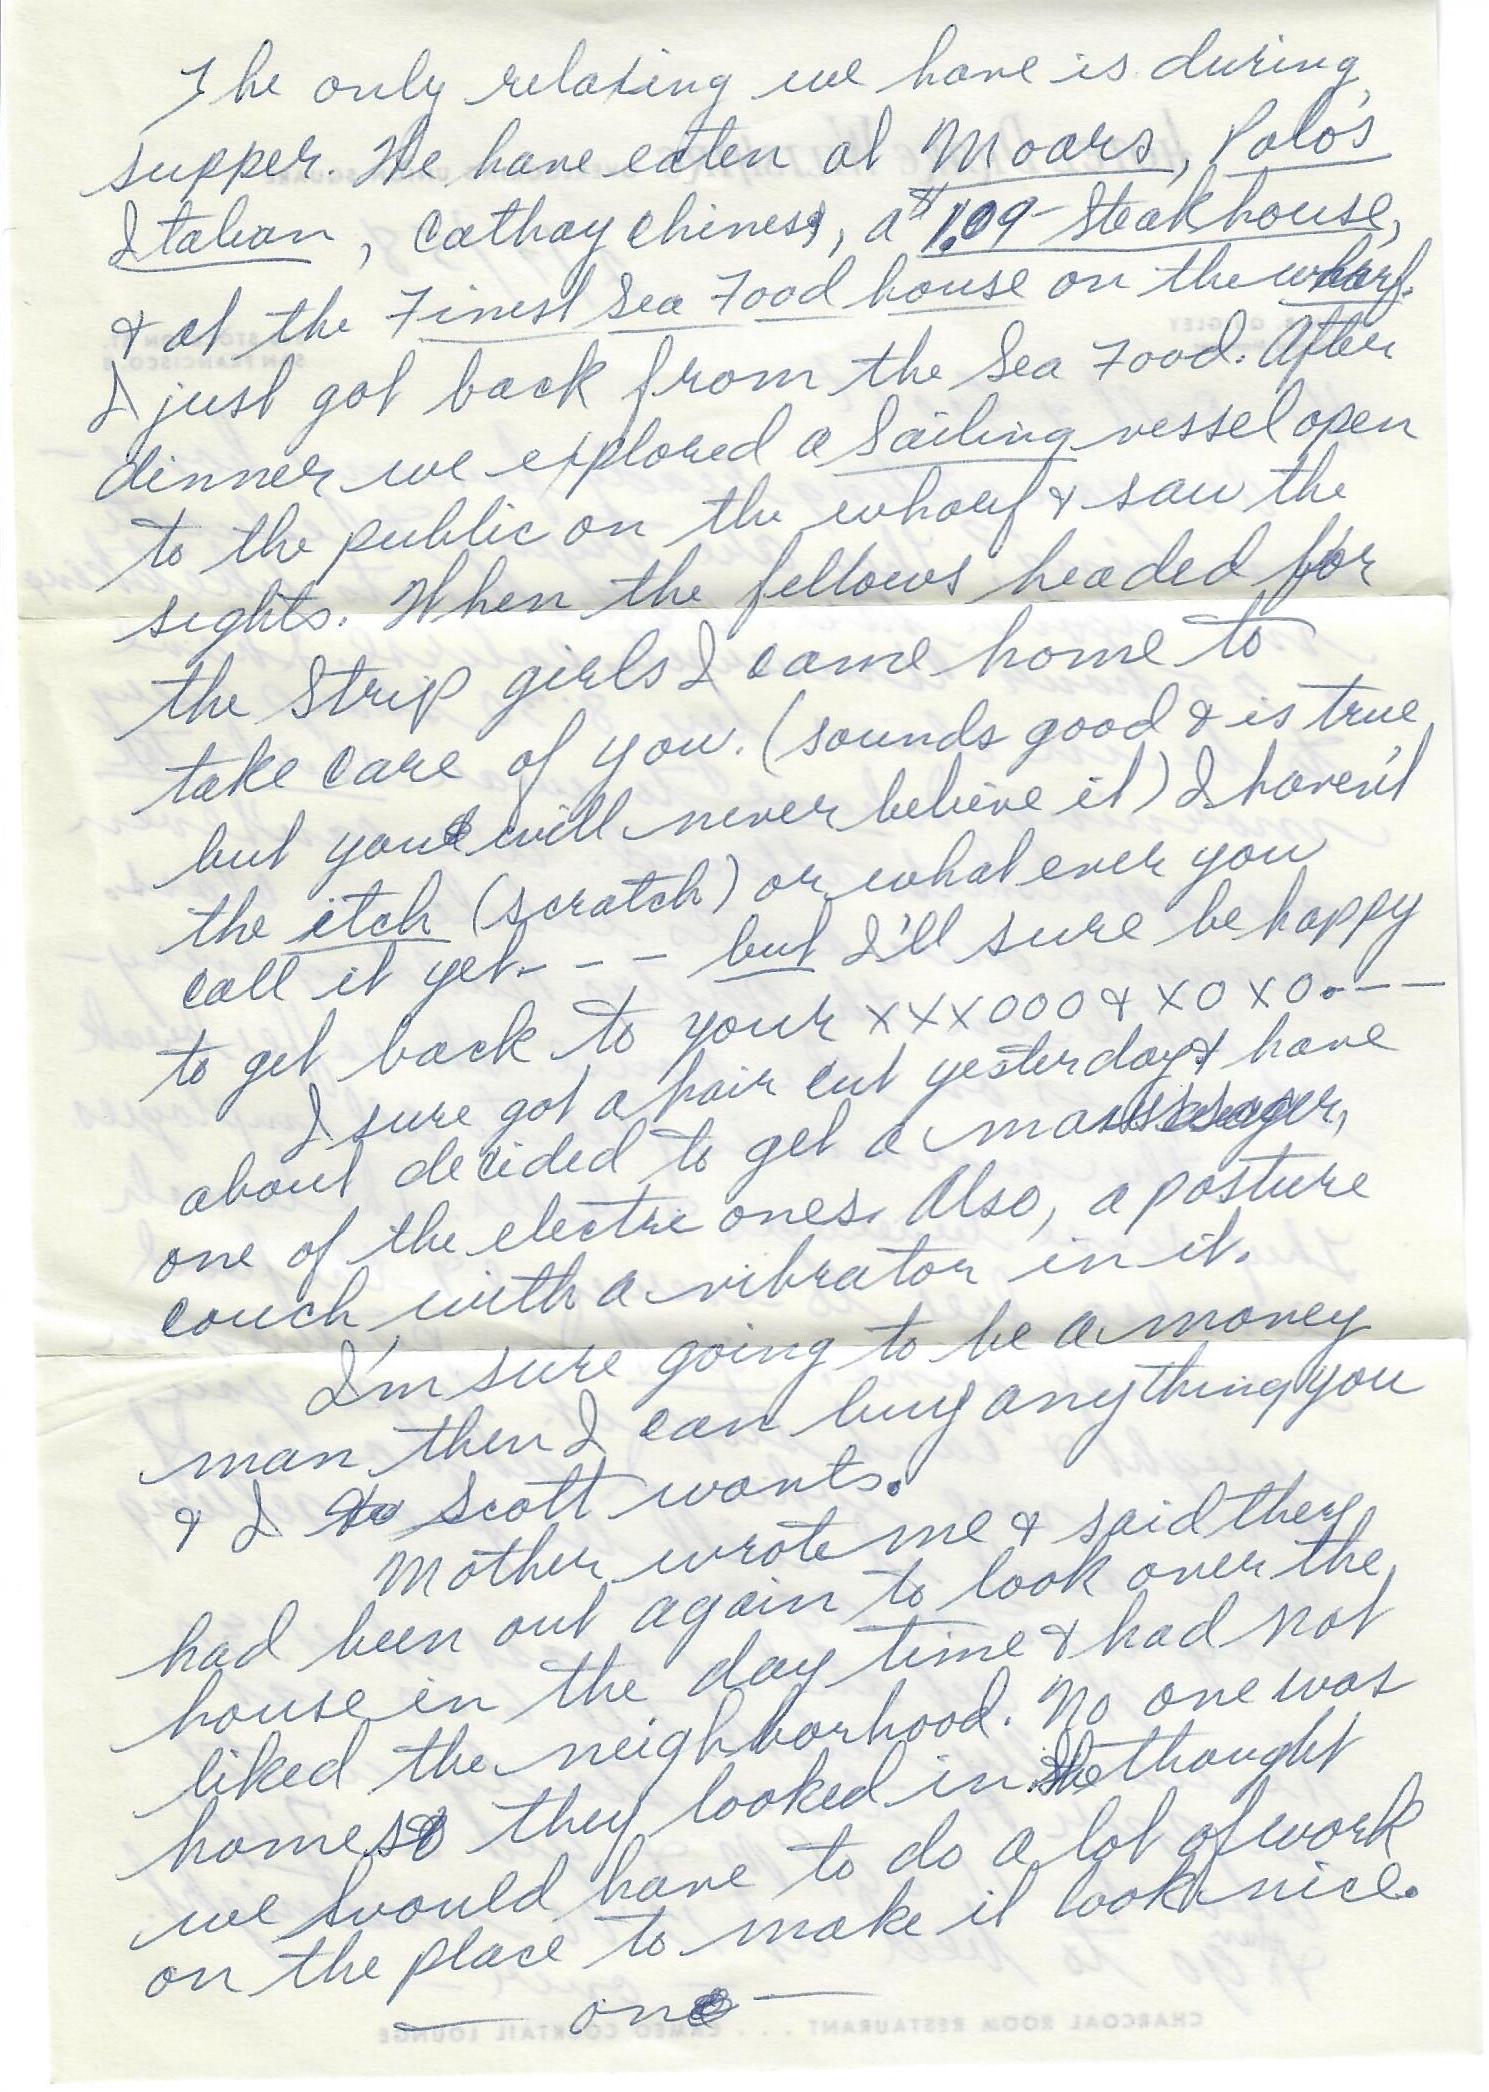 The only relaxing we have is during
supper. We have eaten at Moars, Polo's
Italian, Cathay Chinese, a $1.09 Steak house,
& at the Finest Sea Food house on the wharf.
I just got back from the Sea Food. After
dinner we explored a Sailing vessel open
to the public on the wharf & saw the
sights. When the fellows headed for
the Strip girls I came home to
take care of you. (sounds good & is true,
but you will never believe it) I haven't
the itch (scratch) or what ever you
call it yet - - - but I'll sure be happy
to get back to your xxxooo & xoxo. - - -
I sure got a hair cut yesterday & have
about decided to get a massager,
one of the electric ones. Also, a posture
couch with a vibrator in it.
I'm sure going to be a money
man then I can buy anything you
& I Scott wants.
Mother wrote me & said they
had been out again to look over the
house in the day time & had not
liked the neighborhood. No one was
home so they looked in. She thought
we would have to do a lot of work
on the place to make it look nice.
— one —
SAN FRANCISCO
CHARCOAL ROOM RESTAURANT . . . CAMEO COCKTAIL LOUNGE